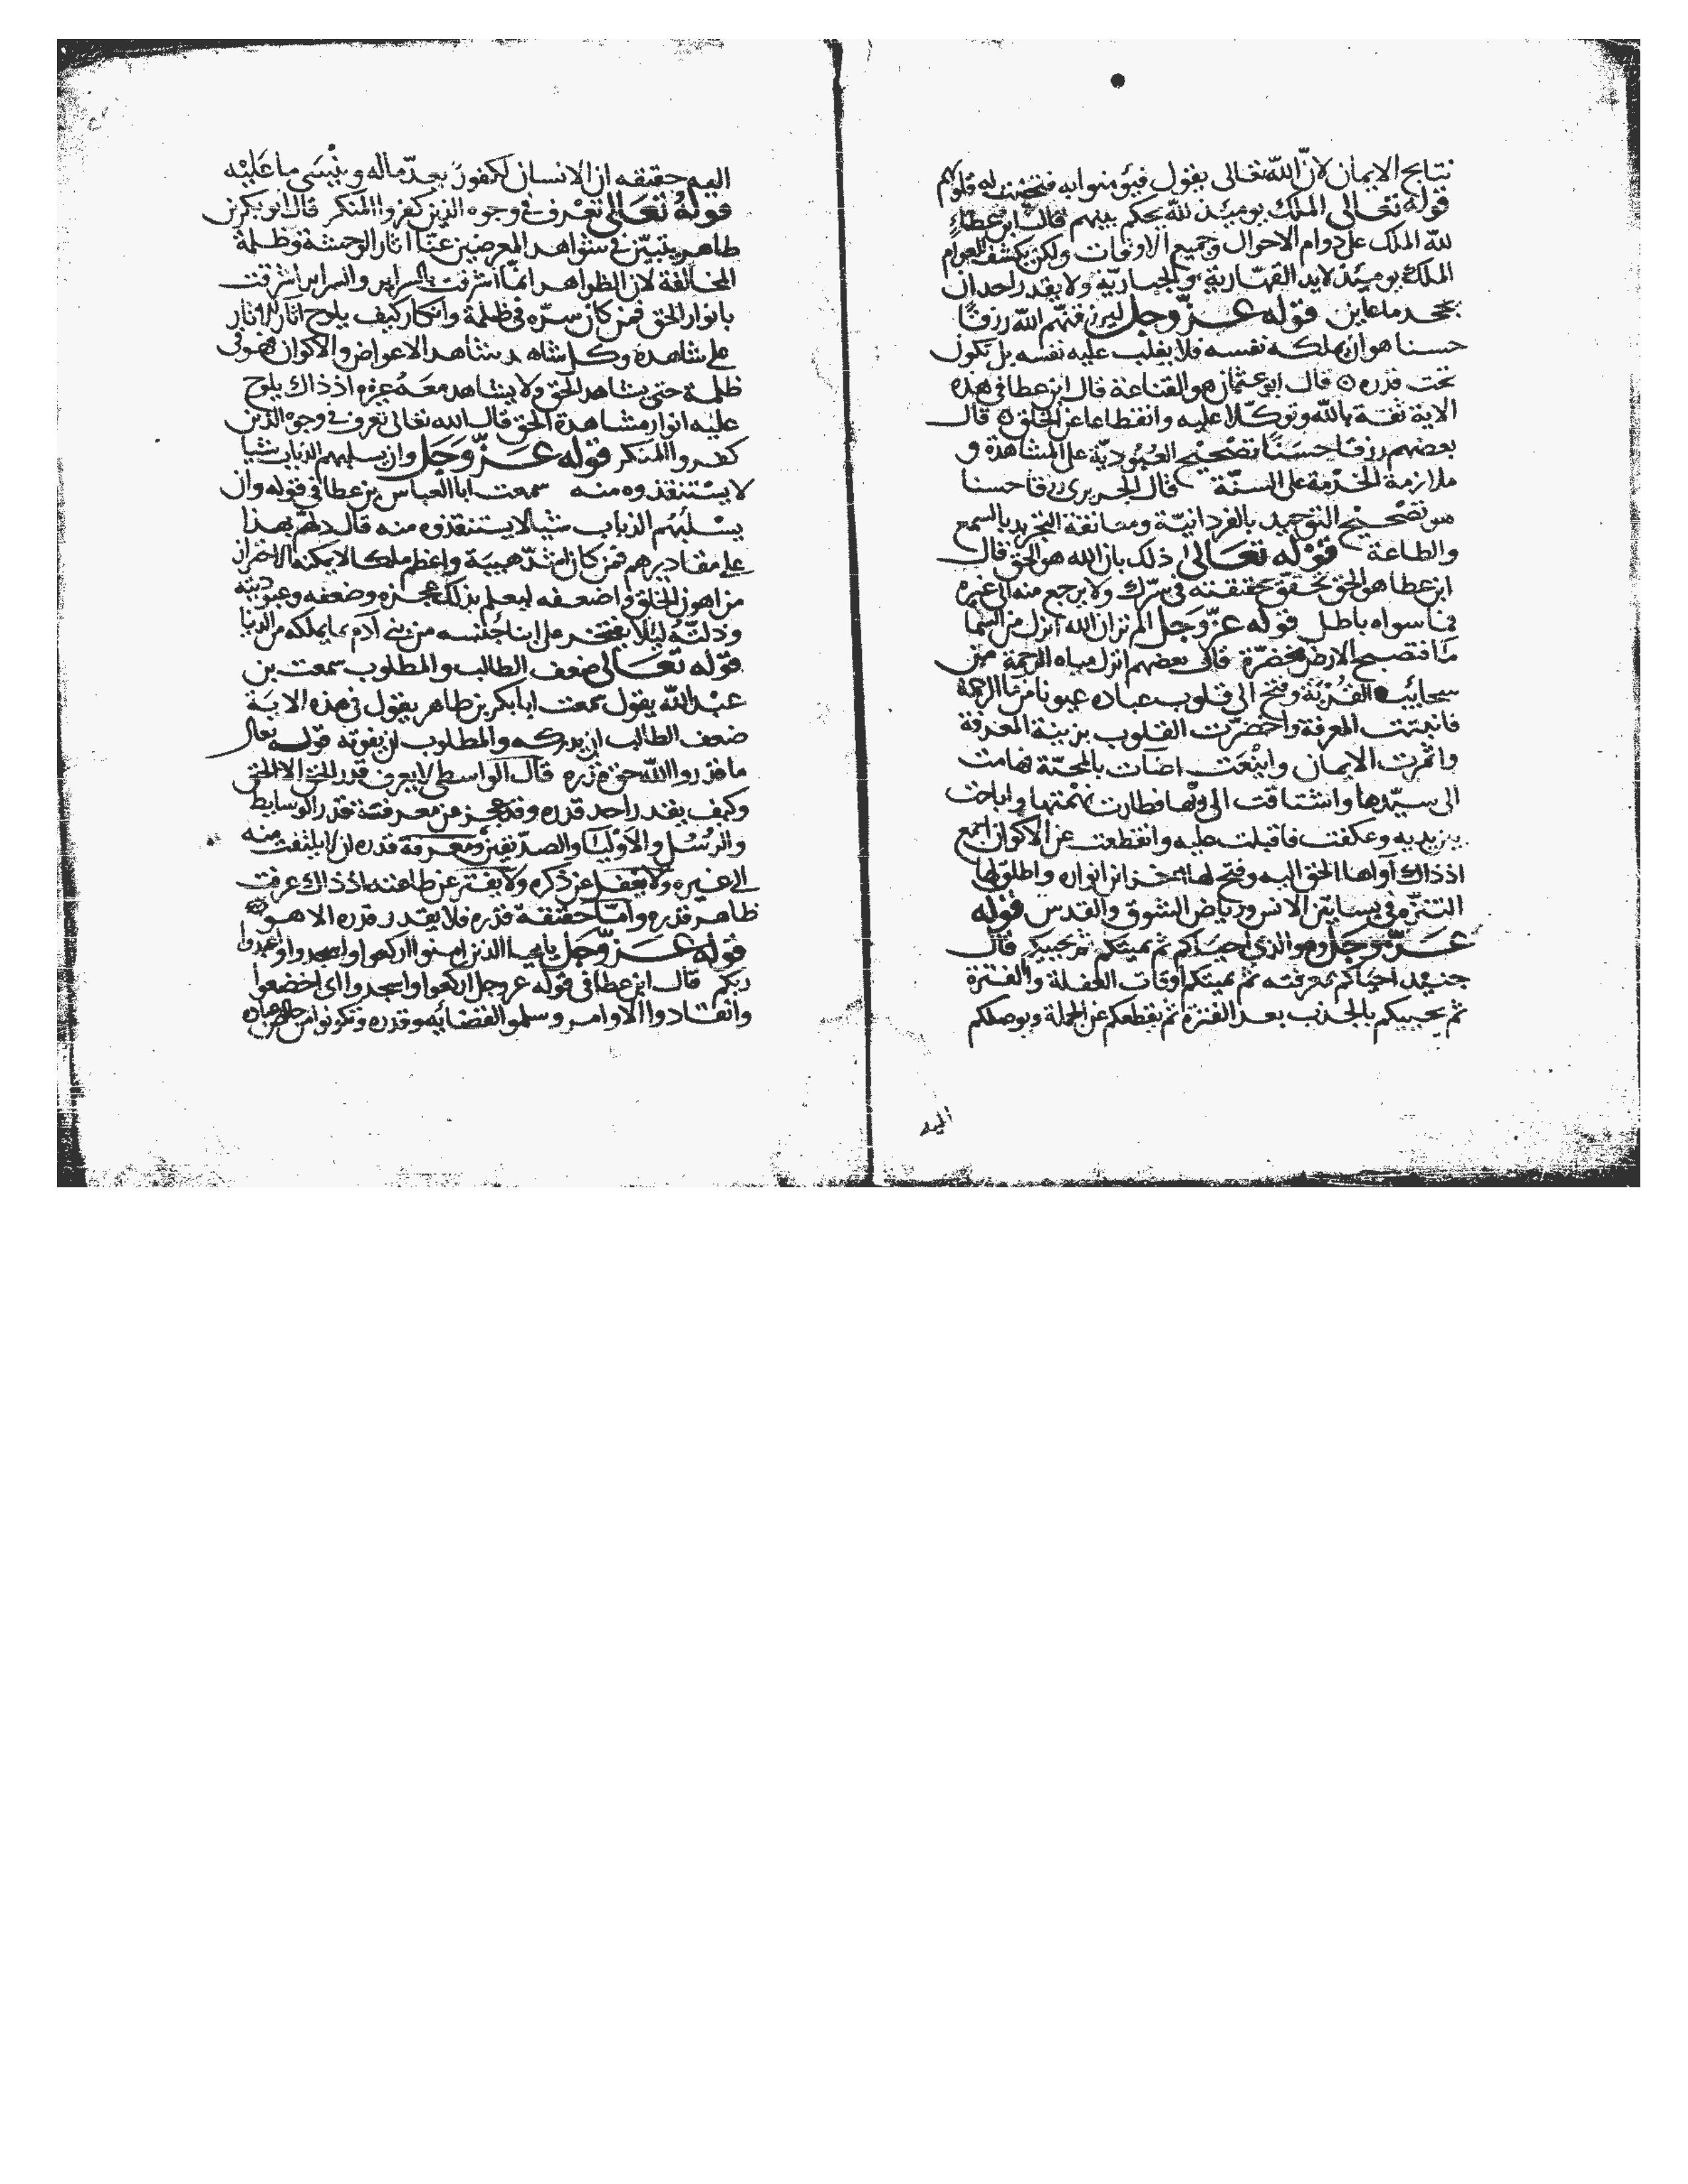 نتايج الايمان لانّ الله تعالى يقول فيؤمنوا به فتخبت له قلوبهم
قوله تعالى الملك يوميذ لله يحكم بينهم قال ابن عطاء
لله الملك على دوام الاحوال وجميع الاوقات ولكن يكشف للعوام
الملك يوميذ لابد القهّارية والجباريّة ولا يقدر احد ان
يجحد ما عاين قوله عزّ وجل ليرزقنّهم الله رزقًا
حسنا هو ان يملكه نفسه فلا يغلب عليه نفسه بل تكون
تحت قدره قال ابو عثمان هو القناعة قال ابن عطا في هذه
الاية ثقة بالله وتوكّلا عليه وانقطاعا عن الخلق قال
بعضهم رزقا حسَنًا تصْحيْح العبُوديّة على المشاهدة و
ملازمة الخدْمة على السنّة قال الجريرى رزقا حسنا
هو تصْحيْح التوحيد بالفردانيّة ومتانقة التجريد بالسمع
والطاعة قوْله تعَالى ذلك بان الله هو الحق قال
ابن عطا هو الحق تحقق حقيقته في سرّك ولا يرجع منه الى غيره
فما سواه باطل قوله عزّ وَجَل الم تر ان الله انزل من السما
مَا فتصبح الارض مخضرّة قال بعضهم انزل مياه الرحمة من
سحايب القُرْبَة وفتح الى قلوب عباده عيونا من ما الرحمة
فانبتت المعرفة واخضرّت القلوب بزينة المعرفة
واثمرت الايمان واينْعَت اضات بالمحبّة فهامت
الى سيّدها واشتاقت الى ربّها فطارت بهْمتها واناخت
بين يديه وعكفت فاقبلت عليه وانقطعت عن الاكوان اجمع
اذ ذاك آواها الحق اليه وفتح لها خزائن انواره واطلق لها
التنزّه في بساتين الانس ورياض الشوق والقدس قوله
عَزّ وَجَل وهو الذي احيَاكم ثم يميتكم ثم يحييكم قال
جنيد احيَاكم بمعرفته ثم يميتكم اوقات الغفلة والفترة
ثم يحييكم بالجذب بعد الفترة ثم يقطعكم عن الجملة ويوصلكم
اليه
اليه حقيقه ان الانسان لكفورٌ يعدّ ماله وينْسَى ما عَليْه
قولهُ تعَالى تعْرف في وجوه الذين كفروا المنكر قال ابو بكر بن
طاهر يتبيّن في شواهد المعرضين عنّا اثار الوحشة وظلمة
المخالفة لان الظواهر انّما اشرقت بالسراير والسراير اشرقت
بانوار الحق فمن كان سرّه في ظلمة وانكار كيف يلوح اثار الانوار
على شاهده وكل شاهد يشاهد الاعواض والاكوان فهو فى
ظلمة حتى يشاهد الحق ولا يشاهد معَهُ غيره اذ ذاك يلوح
عليه انوار مشاهدة الحق قال الله تعالى تعرف في وجوه الذين
كفروا المنكر قوله عَزّ وَجَل وان يسلبهم الذباب شيا
لا يسْتنقذوه منه سمعت ابا العباس بن عطا في قوله وان
يسْلبْهُم الذباب شيا لا يستنقذوه منه قال دلّهم بهذا
على مقاديرهم فمن كان اشدّ هيبَة واعظم ملكا لا يمكنه الاحتراز
من اهون الخلق واضعفه ليعلم بذلك عجزه وضعفه وعبوديته
وذلّته ليلا يفتخر على ابنا جْنسه من بني آدم بما يملكه من الدنيا
قوله تعَالى ضعف الطالب والمطلوب سمعت بن
عبد الله يقول سمعت ابا بكر بن طاهر يقول في هذه الايَة
ضعف الطالب ان يدركه والمطلوب ان يفوته قوله تعالى
ما قدروا الله حق قدره قال الواسطى لا يعرف قدر الحق الا الحق
وكيف يقدر احد قدره وقد عجز عن معرفتة قدر الوسايط
والرسُل والاوليَا والصدّيقين ومعرفة قدره ان لا يلتفت منه
الى غيره ولا يغفل عن ذكره ولا يفتر عن طاعته اذ ذاك عرفت
ظاهر قدره وامّا حقيقة قدره فلا يقدر قدره الا هو
قوله عَزّ وجَل يا ايها الذين امنوا اركعوا واسجدوا واعبدوا
ربكم قال ابن عطا في قوله عز وجل اركعوا واسجدوا اى اخضعوا
وانقادوا الاوامر وسلموا لقضائه وقدره وتكونوا من خالص عباده